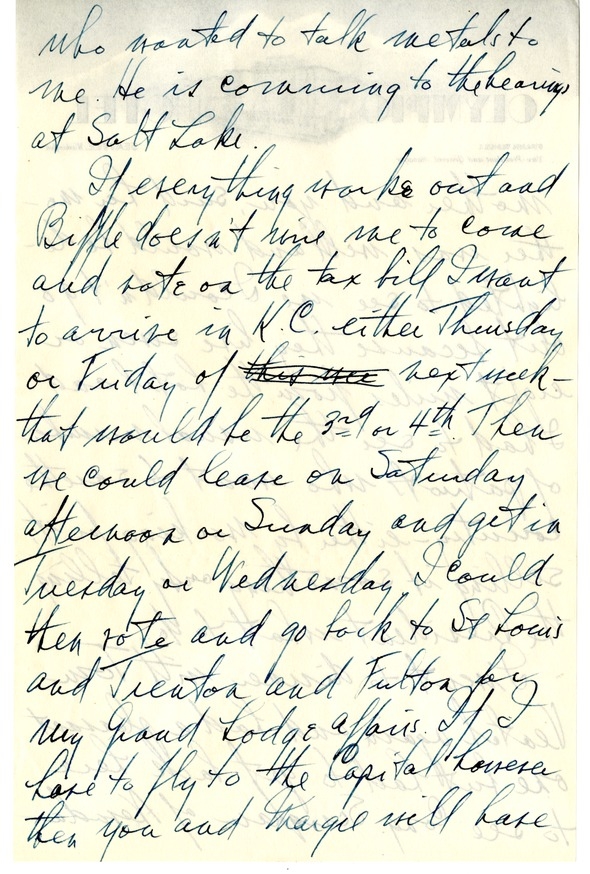 who wanted to talk metals to
me. He is comming to the hearings
at Salt Lake.
If everything works out and
Biffle doesn't wire me to come
and vote on the tax bill I want
to arrive in K.C. either Thursday
or Friday of this wee next week–
that would be the 3rd or 4th. Then
we could leave on Saturday
afternoon or Sunday and get in
Tuesday or Wednesday, I could
then vote and go back to St Louis
and Trenton and Fulton for
my Grand Lodge affairs. If I
have to fly to the Capital however
then you and Margie will have